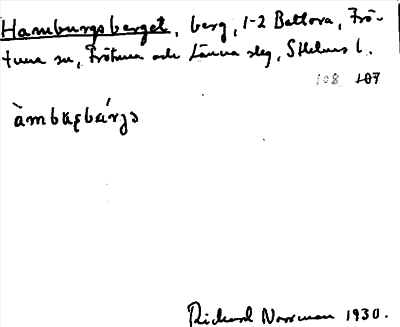 Hamburgsberget, berg, 1-2 Betlova, Frö-
tuna sn, Frötuna och Länna slg, Sthlms l.
108 107
Rickard Norrman 1930.